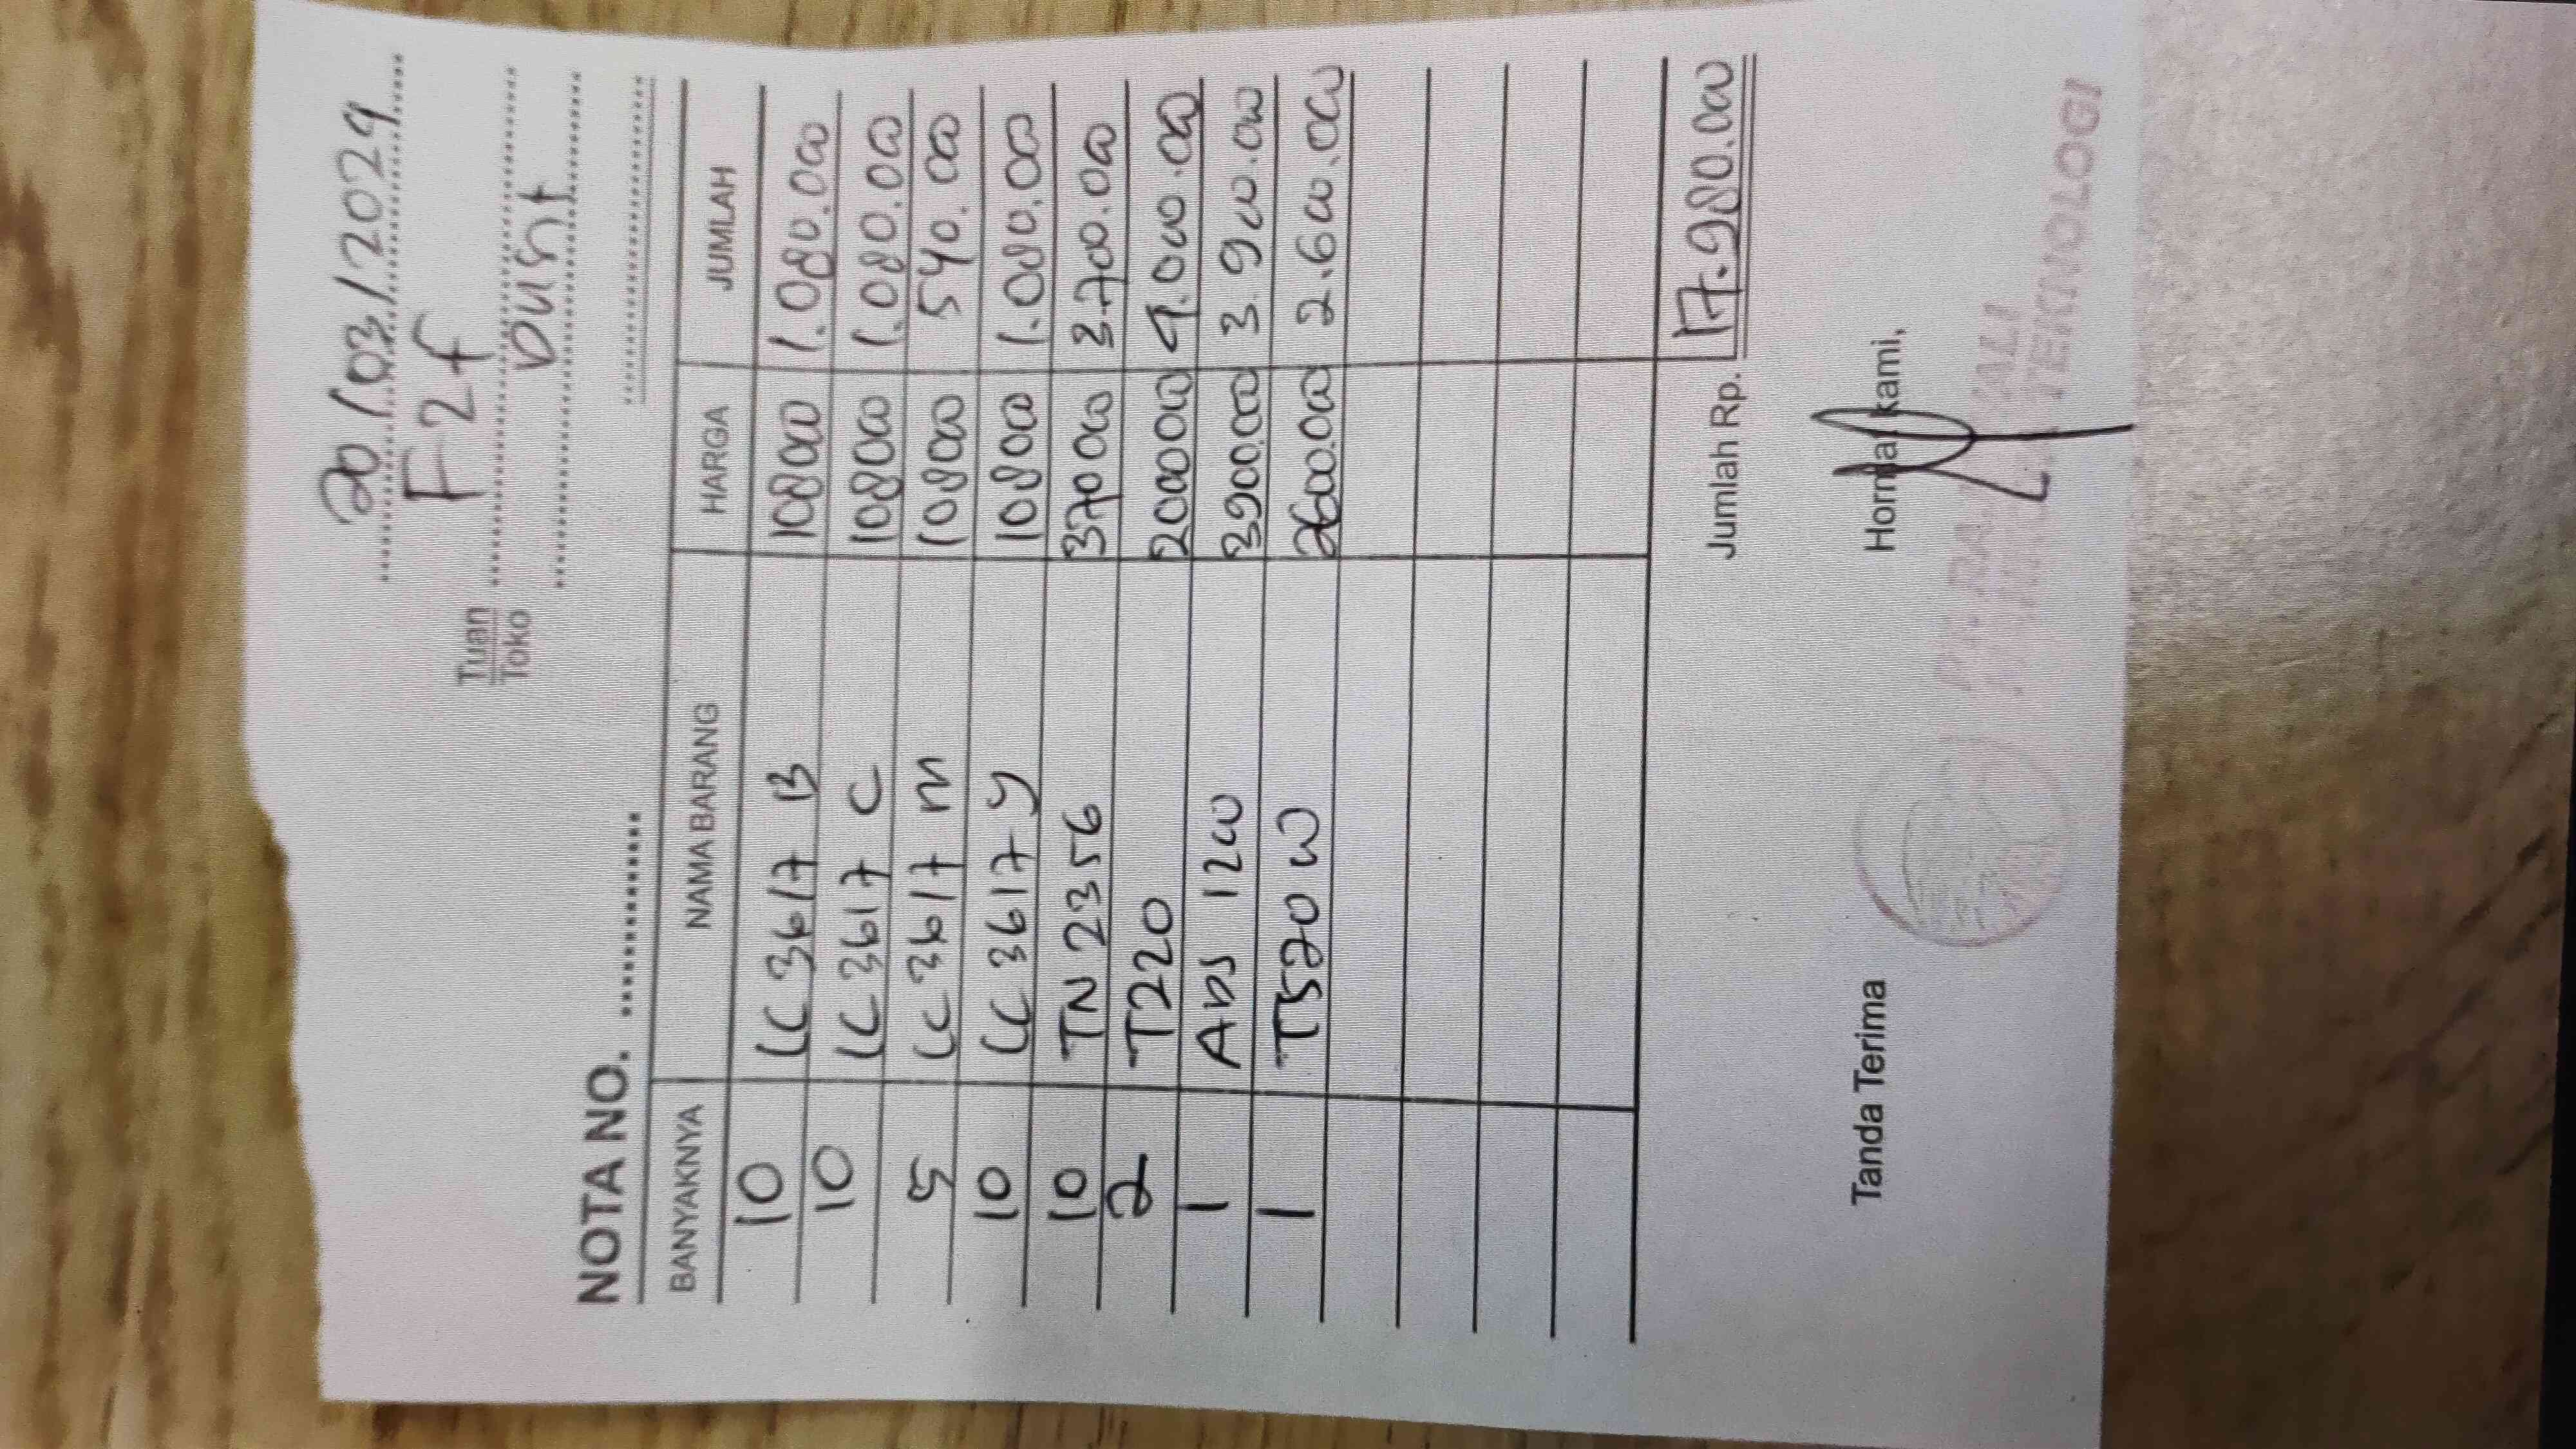 20/03/2024
F2f
Tuan
Toko
NOTA NO.
BANYAKNYA NAMA BARANG HARGA JUMLAH
10 LC 3617 B 108000 1.080.000
10 LC 3617 C 108000 1.080.000
5 LC 3617 M 108000 540.000
10 LC 3617 Y 108000 1.080.000
10 TN 2356 370000 3.700.000
2 T220 2000000 4.000.000
1 Ads 1200 3900.000 3.900.000
1 T520 W 2600.000 2.600.000
Jumlah Rp. 17.980.000
Tanda Terima Hormat kami,
TEKNOLOGI